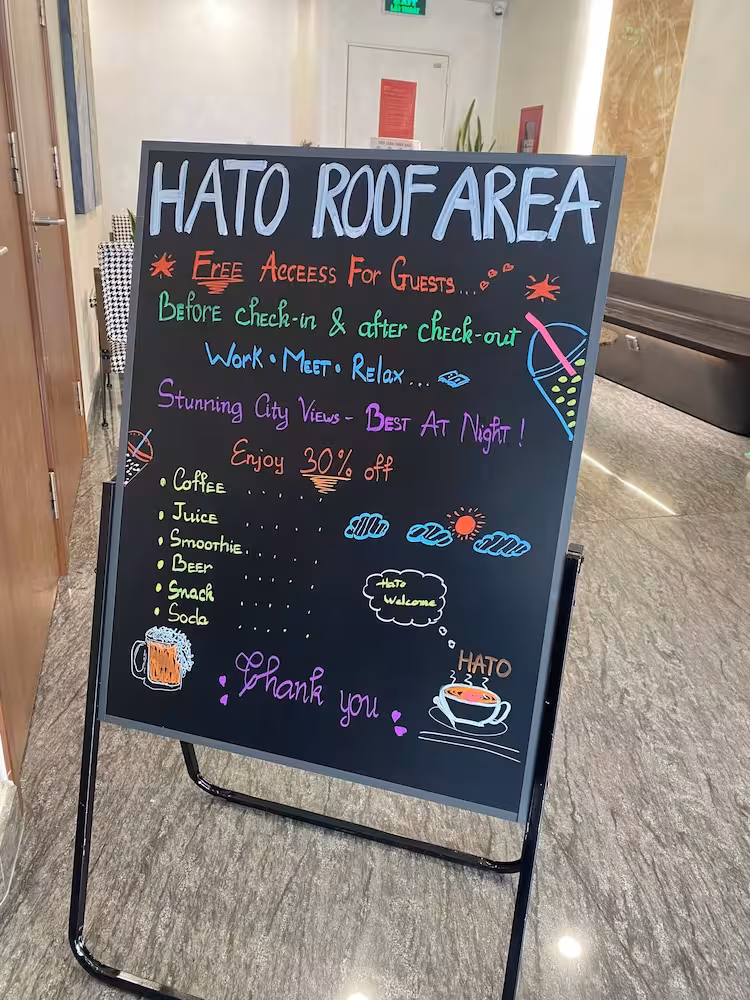 HATO ROOF AREA
FREE ACCESS FOR GUESTS...
Before check-in & after check-out
WORK • MEET • RELAX...
Stunning City Views - BEST AT Night!
Enjoy 30% off
• Coffee ....
• Juice ....
• Smoothie ....
• Beer ....
• Snack ....
• Soda ....
HaTo
Welcome
HATO
Thank you